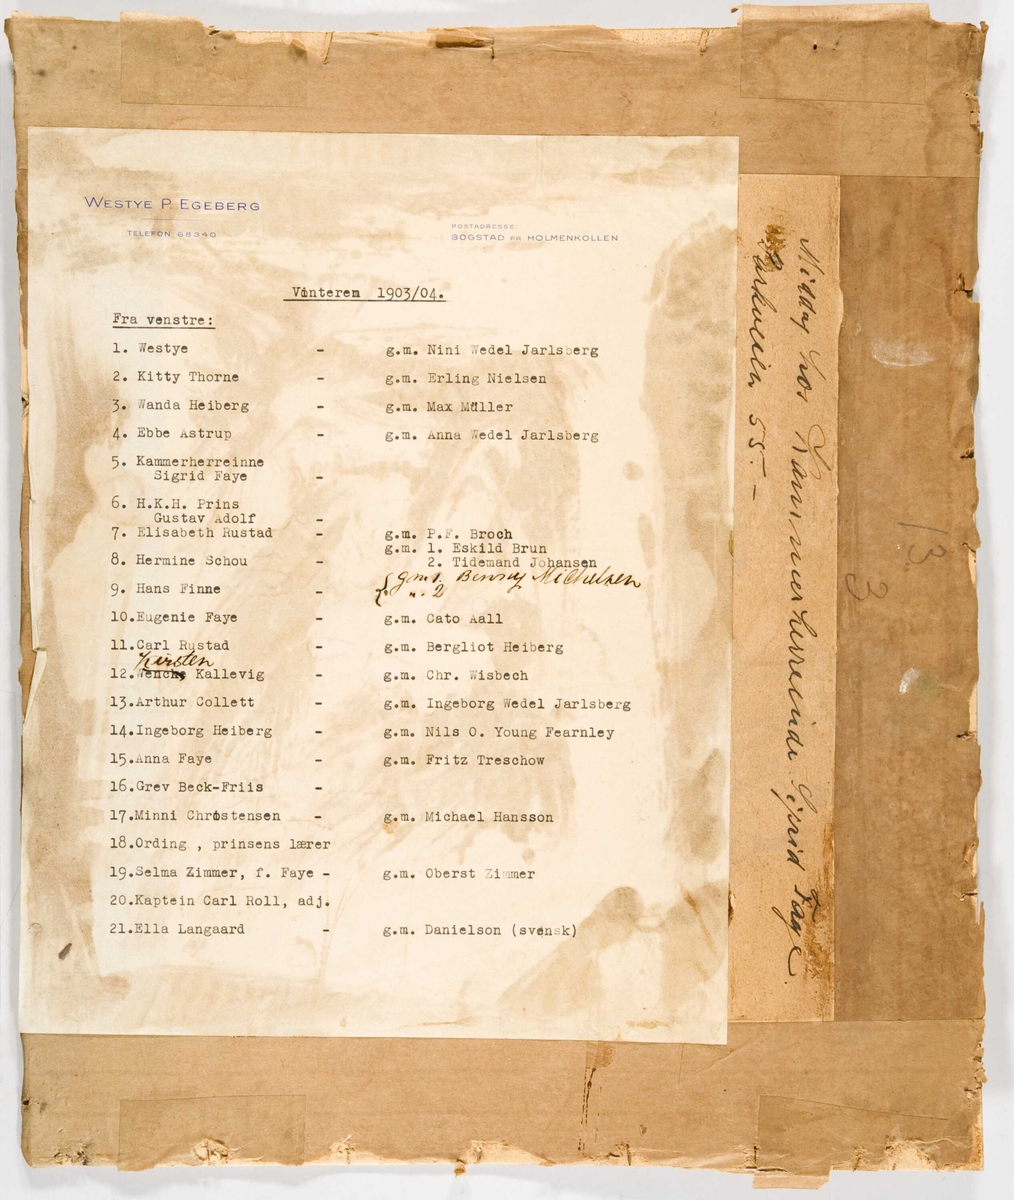 WESTYE P. EGEBERG
TELEFON 68340
POSTADRESSE
BOGSTAD PR HOLMENKOLLEN
Vinteren 1903/04.
Fra venstre:
1. Westye - g.m. Nini Wedel Jarlsberg
2. Kitty Thorne - g.m. Erling Nielsen
3. Wanda Heiberg - g.m. Max Müller
4. Ebbe Astrup - g.m. Anna Wedel Jarlsberg
5. Kammerherreinne
Sigrid Faye -
6. H.K.H. Prins
Gustav Adolf -
7. Elisabeth Rustad - g.m. P.F. Broch
g.m. 1. Eskild Brun
8. Hermine Schou - 2. Tidemand Johansen
{ g.m 1. Benny Michelsen
9. Hans Finne - ". 2
10. Eugenie Faye - g.m. Cato Aall
11. Carl Rustad - g.m. Bergliot Heiberg
Kirsten
12. Wenche Kallevig - g.m. Chr. Wisbech
13. Arthur Collett - g.m. Ingeborg Wedel Jarlsberg
14. Ingeborg Heiberg - g.m. Nils O. Young Fearnley
15. Anna Faye - g.m. Fritz Treschow
16. Grev Beck-Friis -
17. Minni Christensen - g.m. Michael Hansson
18. Ording , prinsens lærer
19. Selma Zimmer, f. Faye - g.m. Oberst Zimmer
20. Kaptein Carl Roll, adj.
21. Ella Langaard - g.m. Danielson (svensk)
Middag hos Kammerherreinde Sigrid Faye
Parkveien 55. -
13
3